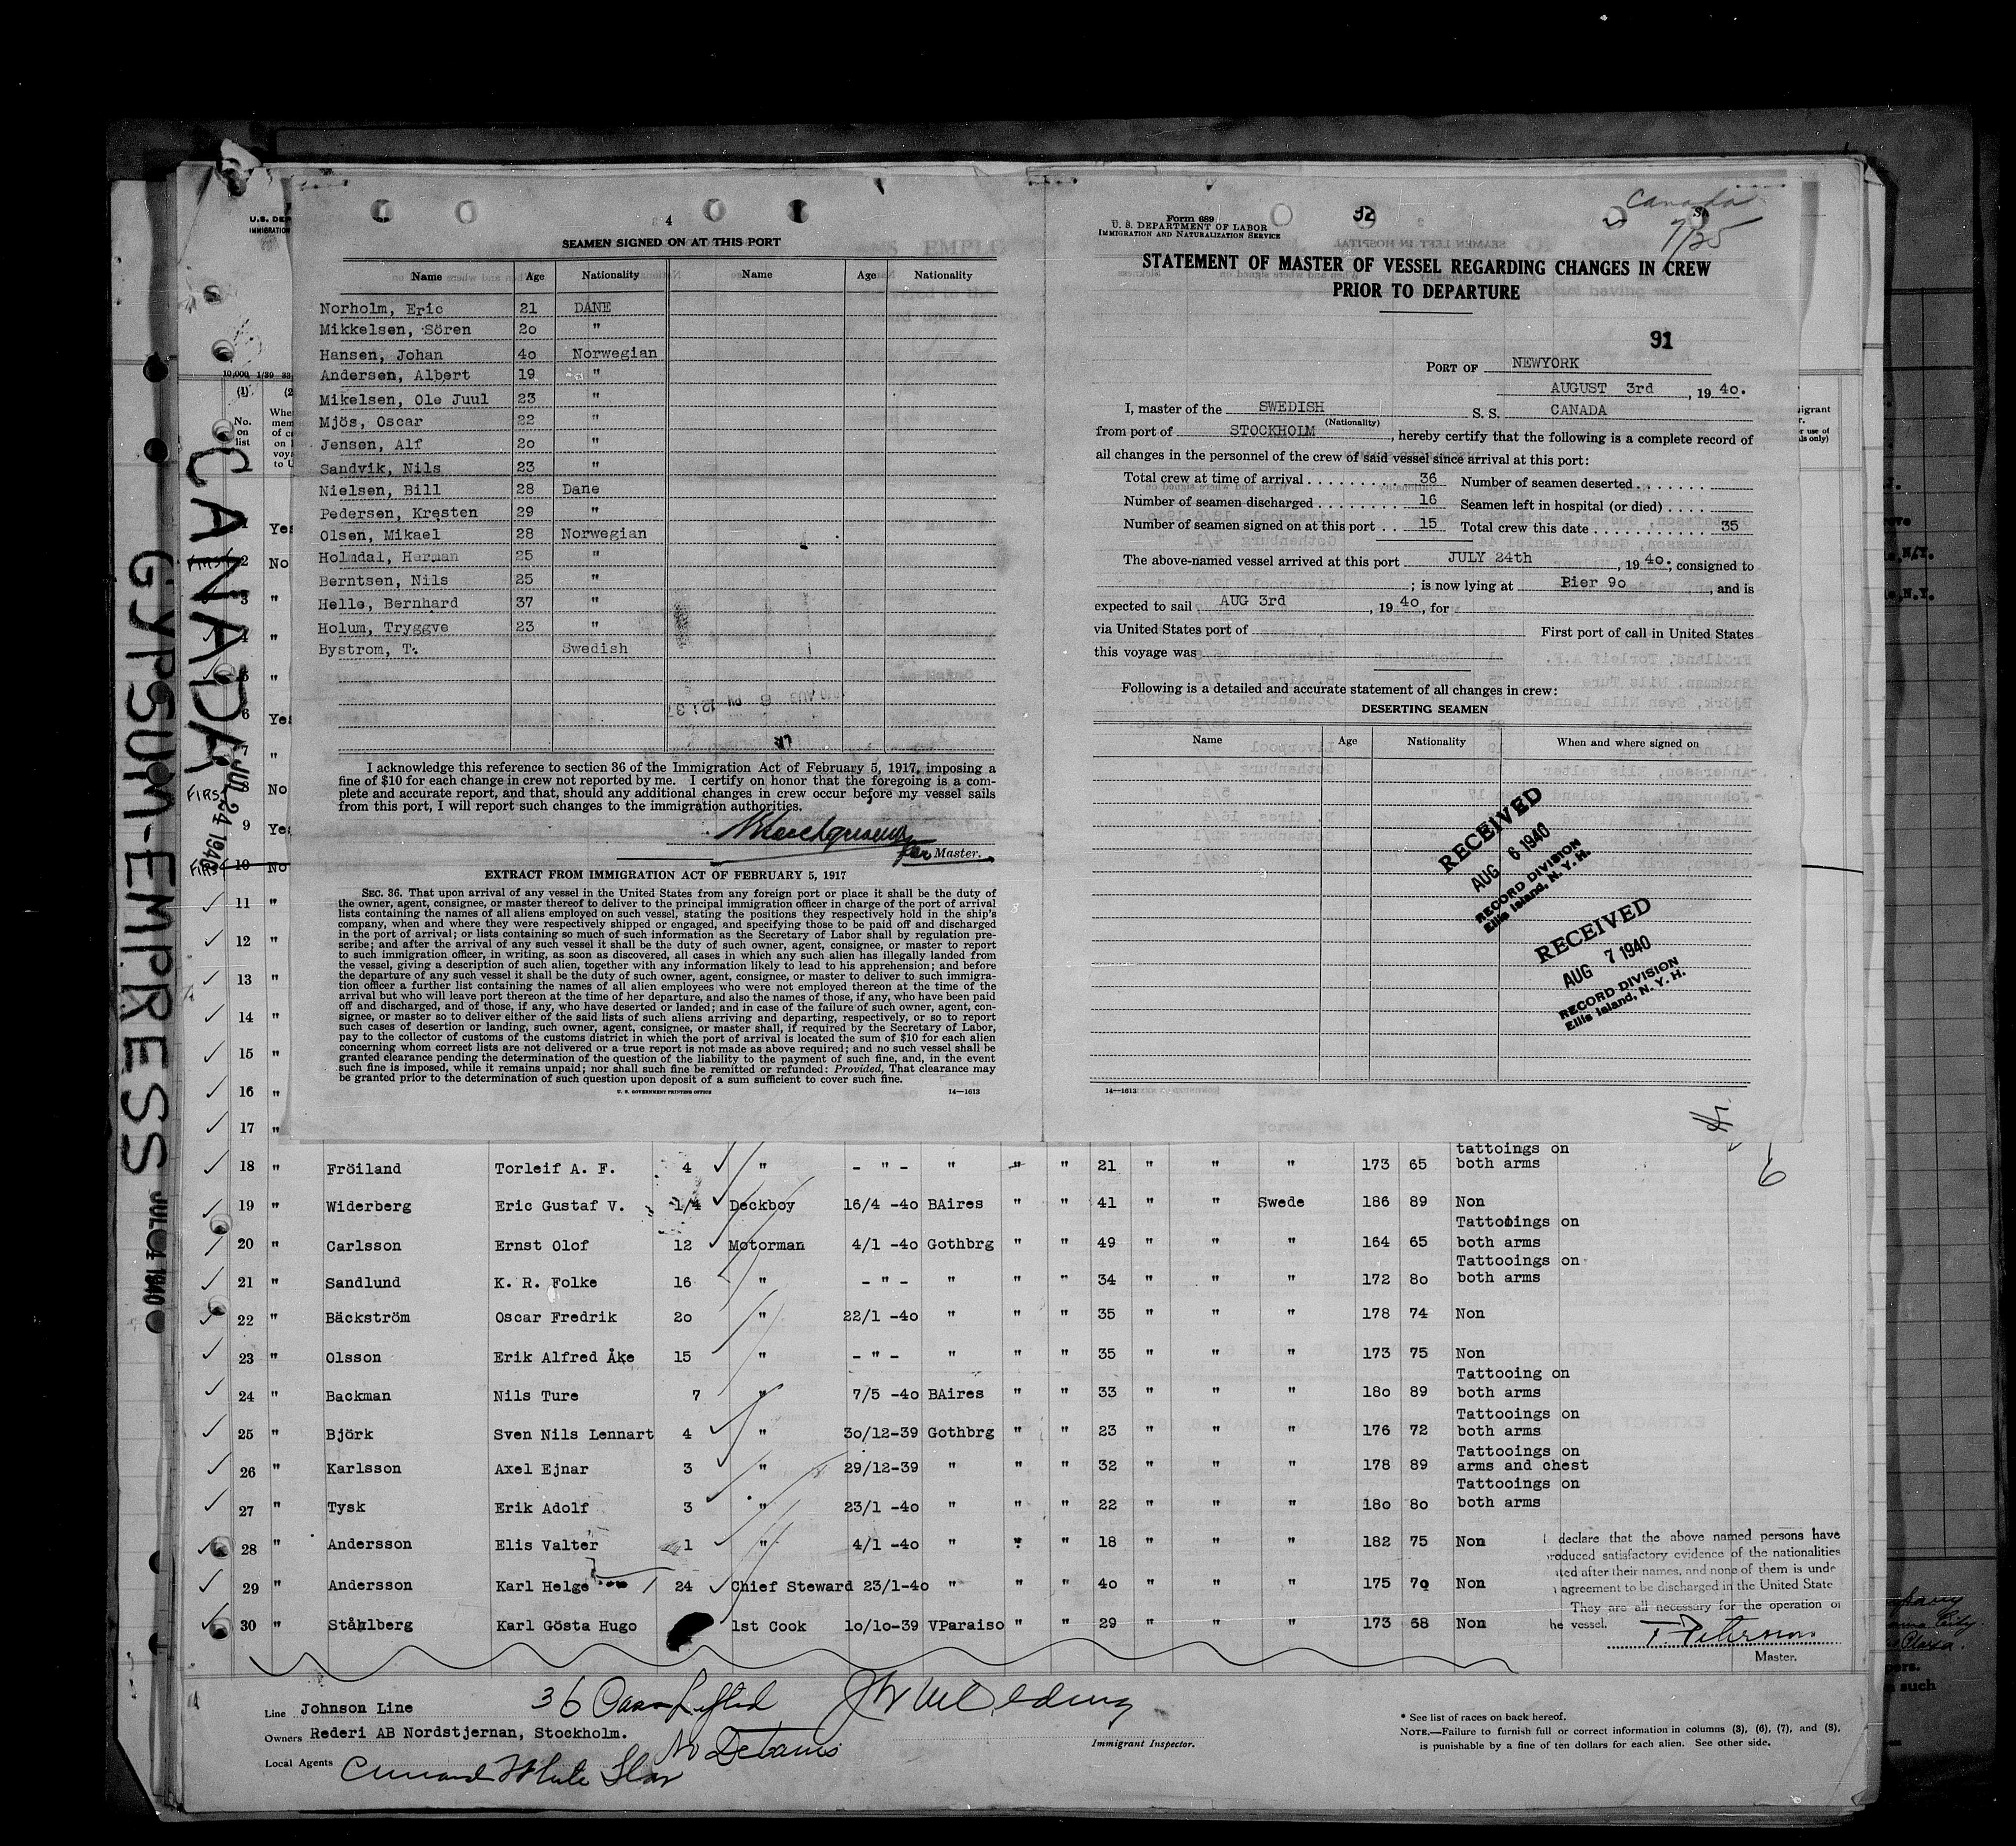 CANADA
GYPSUM-EMPRESS
JUL 24 1940
4
SEAMEN SIGNED ON AT THIS PORT
Name Age Nationality Name Age Nationality
Norholm, Eric 21 DANE
Mikkelsen, Sören 2o "
Hansen, Johan 4o Norwegian
Andersen, Albert 19 "
Mikelsen, Ole Juul 23 "
Mjös, Oscar 22 "
Jensen, Alf 2o "
Sandvik, Nils 23 "
Nielsen, Bill 28 Dane
Pedersen, Kresten 29 "
Olsen, Mikael 28 Norwegian
Holmdal, Herman 25 "
Berntsen, Nils 25 "
Helle, Bernhard 37 "
Holum, Tryggve 23 "
Bystrom, T. Swedish
I acknowledge this reference to section 36 of the Immigration Act of February 5, 1917, imposing a
fine of $10 for each change in crew not reported by me. I certify on honor that the foregoing is a com-
plete and accurate report, and that, should any additional changes in crew occur before my vessel sails
from this port, I will report such changes to the immigration authorities.
for Master.
EXTRACT FROM IMMIGRATION ACT OF FEBRUARY 5, 1917
SEC. 36. That upon arrival of any vessel in the United States from any foreign port or place it shall be the duty of
the owner, agent, consignee, or master thereof to deliver to the principal immigration officer in charge of the port of arrival
lists containing the names of all aliens employed on such vessel, stating the positions they respectively hold in the ship's
company, when and where they were respectively shipped or engaged, and specifying those to be paid off and discharged
in the port of arrival; or lists containing so much of such information as the Secretary of Labor shall by regulation pre-
scribe; and after the arrival of any such vessel it shall be the duty of such owner, agent, consignee, or master to report
to such immigration officer, in writing, as soon as discovered, all cases in which any such alien has illegally landed from
the vessel, giving a description of such alien, together with any information likely to lead to his apprehension; and before
the departure of any such vessel it shall be the duty of such owner, agent, consignee, or master to deliver to such immigra-
tion officer a further list containing the names of all alien employees who were not employed thereon at the time of the
arrival but who will leave port thereon at the time of her departure, and also the names of those, if any, who have been paid
off and discharged, and of those, if any, who have deserted or landed; and in case of the failure of such owner, agent, con-
signee, or master so to deliver either of the said lists of such aliens arriving and departing, respectively, or so to report
such cases of desertion or landing, such owner, agent, consignee, or master shall, if required by the Secretary of Labor,
pay to the collector of customs of the customs district in which the port of arrival is located the sum of $10 for each alien
concerning whom correct lists are not delivered or a true report is not made as above required; and no such vessel shall be
granted clearance pending the determination of the question of the liability to the payment of such fine, and, in the event
such fine is imposed, while it remains unpaid; nor shall such fine be remitted or refunded: Provided, That clearance may
be granted prior to the determination of such question upon deposit of a sum sufficient to cover such fine.
U. S. GOVERNMENT PRINTING OFFICE 14—1613
Canada
7/25
Form 689
U. S. DEPARTMENT OF LABOR
IMMIGRATION AND NATURALIZATION SERVICE
92
STATEMENT OF MASTER OF VESSEL REGARDING CHANGES IN CREW
PRIOR TO DEPARTURE
91
PORT OF NEWYORK
AUGUST 3rd , 19 4o.
I, master of the SWEDISH S. S. CANADA
(Nationality)
from port of STOCKHOLM , hereby certify that the following is a complete record of
all changes in the personnel of the crew of said vessel since arrival at this port:
Total crew at time of arrival 36 Number of seamen deserted
Number of seamen discharged 16 Seamen left in hospital (or died)
Number of seamen signed on at this port 15 Total crew this date 35
The above-named vessel arrived at this port JULY 24th , 19 4o ; consigned to
; is now lying at Pier 9o , and is
expected to sail AUG 3rd , 19 4o , for
via United States port of First port of call in United States
this voyage was
Following is a detailed and accurate statement of all changes in crew:
DESERTING SEAMEN
Name Age Nationality When and where signed on
RECEIVED
AUG 6 1940
RECORD DIVISION
Ellis Island, N. Y. H.
RECEIVED
AUG 7 1940
RECORD DIVISION
Ellis Island, N. Y. H.
14—1613
1 Yes
2 No
3 "
4 "
5 "
6 Yes
7 "
FIRST No
9 Yes
FIRST 10 No
11 "
12 "
13 "
14 "
15 "
16 "
17 "
tattoings on
18 " Fröiland Torleif A. F. 4 " - " - " " " 21 " " " 173 65 both arms
19 " Widerberg Eric Gustaf V. 1/4 Deckboy 16/4 -4o BAires " " 41 " " Swede 186 89 Non
Tattooings on
20 " Carlsson Ernst Olof 12 Motorman 4/1 -4o Gothbrg " " 49 " " " 164 65 both arms
Tattooings on
21 " Sandlund K. R. Folke 16 " - " - " " " 34 " " " 172 8o both arms
22 " Bäckström Oscar Fredrik 2o " 22/1 -4o " " " 35 " " " 178 74 Non
23 " Olsson Erik Alfred Åke 15 " - " - " " " 35 " " " 173 75 Non
Tattooing on
24 " Backman Nils Ture 7 " 7/5 -4o BAires " " 33 " " " 18o 89 both arms
Tattooings on
25 " Björk Sven Nils Lennart 4 " 3o/12-39 Gothbrg " " 23 " " " 176 72 both arms
Tattooings on
26 " Karlsson Axel Ejnar 3 " 29/12-39 " " " 32 " " " 178 89 arms and chest
Tattooings on
27 " Tysk Erik Adolf 3 " 23/1 -4o " " " 22 " " " 18o 8o both arms
28 " Andersson Elis Valter 1 " 4/1 -4o " " " 18 " " " 182 75 Non
29 " Andersson Karl Helge 24 Chief Steward 23/1-4o " " " 4o " " " 175 7o Non
30 " Ståhlberg Karl Gösta Hugo 1st Cook 1o/1o-39 VParaiso " " 29 " " " 173 68 Non
I declare that the above named persons have
roduced satisfactory evidence of the nationalities
ted after their names, and none of them is unde
agreement to be discharged in the United State
They are all necessary for the operation of
he vessel. T. Peterson
Master.
Line Johnson Line
36 Lifted
Owners Rederi AB Nordstjernan, Stockholm.
No Detains
Immigrant Inspector.
Local Agents Cunard White Star
* See list of races on back hereof.
NOTE.—Failure to furnish full or correct information in columns (3), (6), (7), and (8),
is punishable by a fine of ten dollars for each alien. See other side.